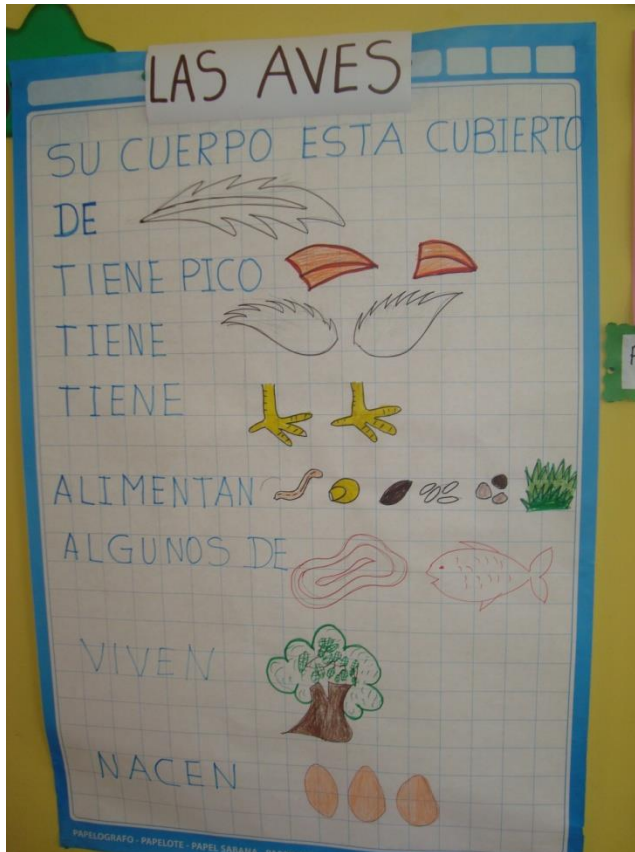 LAS AVES
SU CUERPO ESTA CUBIERTO
DE
TIENE PICO
TIENE
TIENE
ALIMENTAN
ALGUNOS DE
VIVEN
NACEN
PAPELOGRAFO - PAPELOTE - PAPEL SABANA